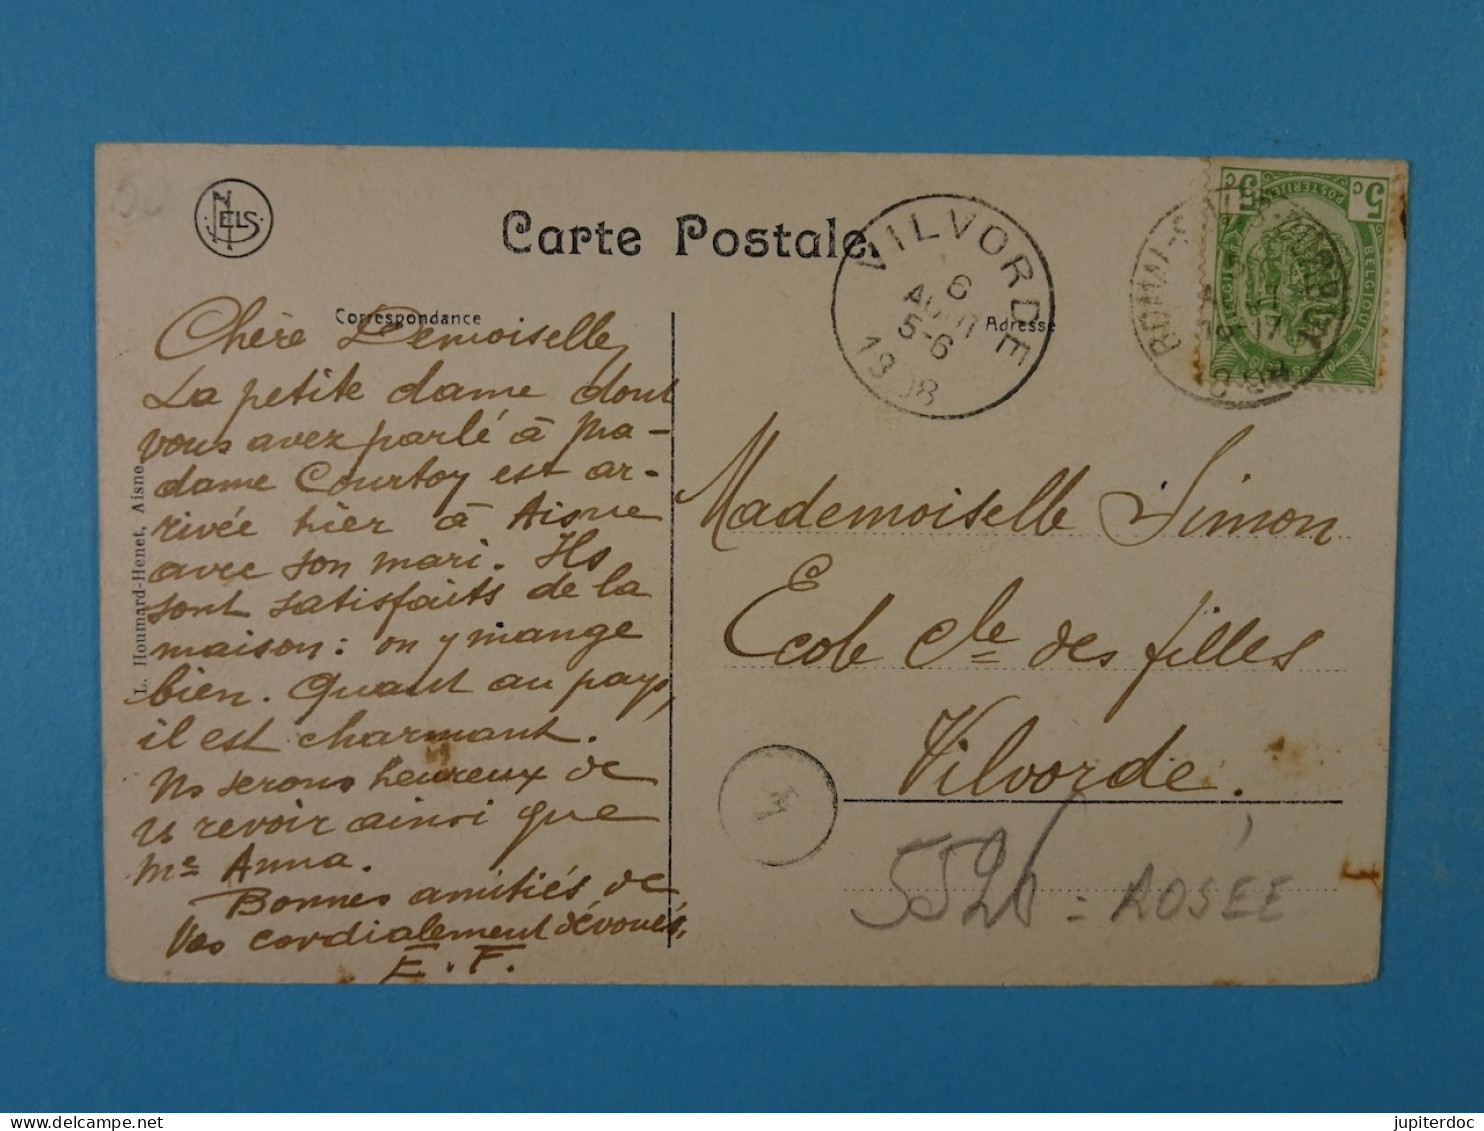 50
NELS
Carte Postale.
Correspondance
Adresse
VILVORDE
6
AOUT
5-6
1908
BOMAL-S
5 c
5 c
POSTERIJEN
BELGIQUE
Chère Demoiselle,
La petite dame dont
vous avez parlé à Ma-
dame Courtoy est ar-
rivée hier à Aisne
avec son mari. Ils
sont satisfaits de la
maison: on y mange
bien. Quant au pays,
il est charmant.
Ns serons heureux de
vs revoir ainsi que
Me Anna.
Bonnes amitiés de
Vos cordialement dévoués,
E. F.
L. Houmard-Henet, Aisne
Mademoiselle Simon
Ecole Cle des filles
Vilvorde.
M
= ROSÉE
jupiterdoc